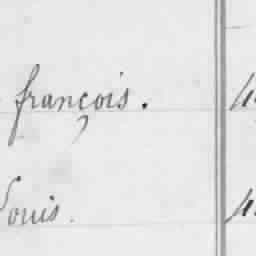 françois.
Louis.